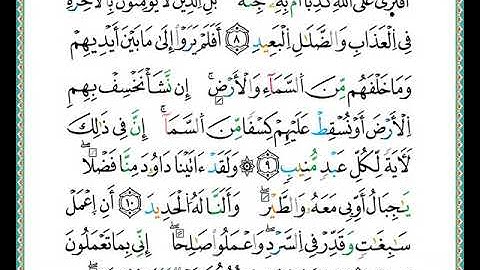 افترى على الله كذبا ام به جنة بل الذين لا يومنون بالاخرة
فِي اِ۬لْعَذَابِ وَالضَّلَٰلِ اِ۬لْبَعِيدِ ٨ أَفَلَمْ يَرَوِاْ اِلَىٰ مَا بَيْنَ أَيْدِيهِمْ
وَمَا خَلْفَهُم مِّنَ اَ۬لسَّمَآءِ وَالَارْضِ إِن نَّشَأْ نَخْسِفْ بِهِمِ
اِ۬لَارْضَ أَوْ نُسْقِطْ عَلَيْهِمْ كِسْفاٗ مِّنَ اَ۬لسَّمَآءِ ا۪نَّ فِي ذَٰلِكَ
لَأٓيَةٗ لِّكُلِّ عَبْدٖ مُّنِيبٖ ٩ وَلَقَدَ اٰتَيْنَا دَاوُۥدَ مِنَّا فَضْلاٗ
يَٰجِبَالُ أَوِّبِي مَعَهُۥ وَالطَّيْرَ وَأَلَنَّا لَهُ اُ۬لْحَدِيدَ ١٠ أَنِ اِ۪عْمَلْ
سَٰبِغَٰتٖ وَقَدِّرْ فِي اِ۬لسَّرْدِ وَاعْمَلُواْ صَٰلِحاً اِنِّي بِمَا تَعْمَلُونَ